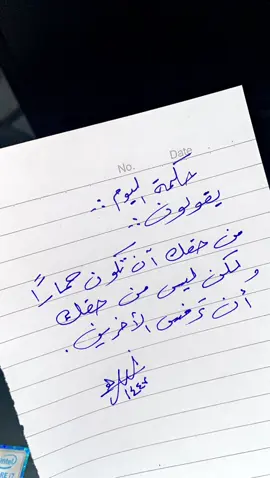 No. Date
حكمة اليوم :-
يقولون :-
من حقك أن تكون حمارًا
لكن ليس من حقك
أن ترفس الآخرين.
intel